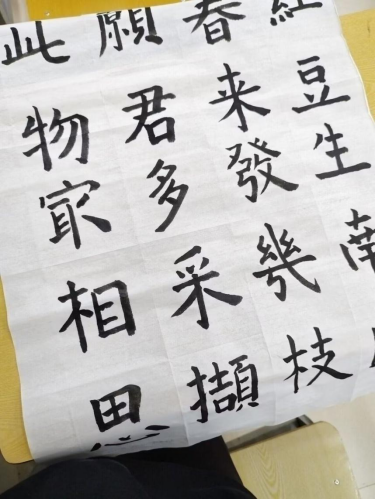 紅豆生南
春来發幾枝
願君多采擷
此物㝡相思